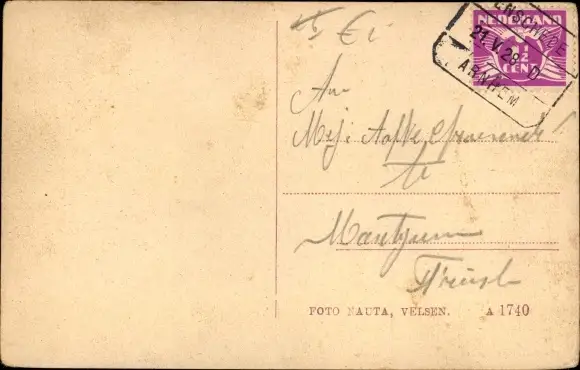 NEDERLAND
1½
CENT
ENSCHEDE
21.V.29. D
ARNHEM
An
Mej. Aafke
te
Mantgum
Friesl.
FOTO NAUTA, VELSEN. A 1740